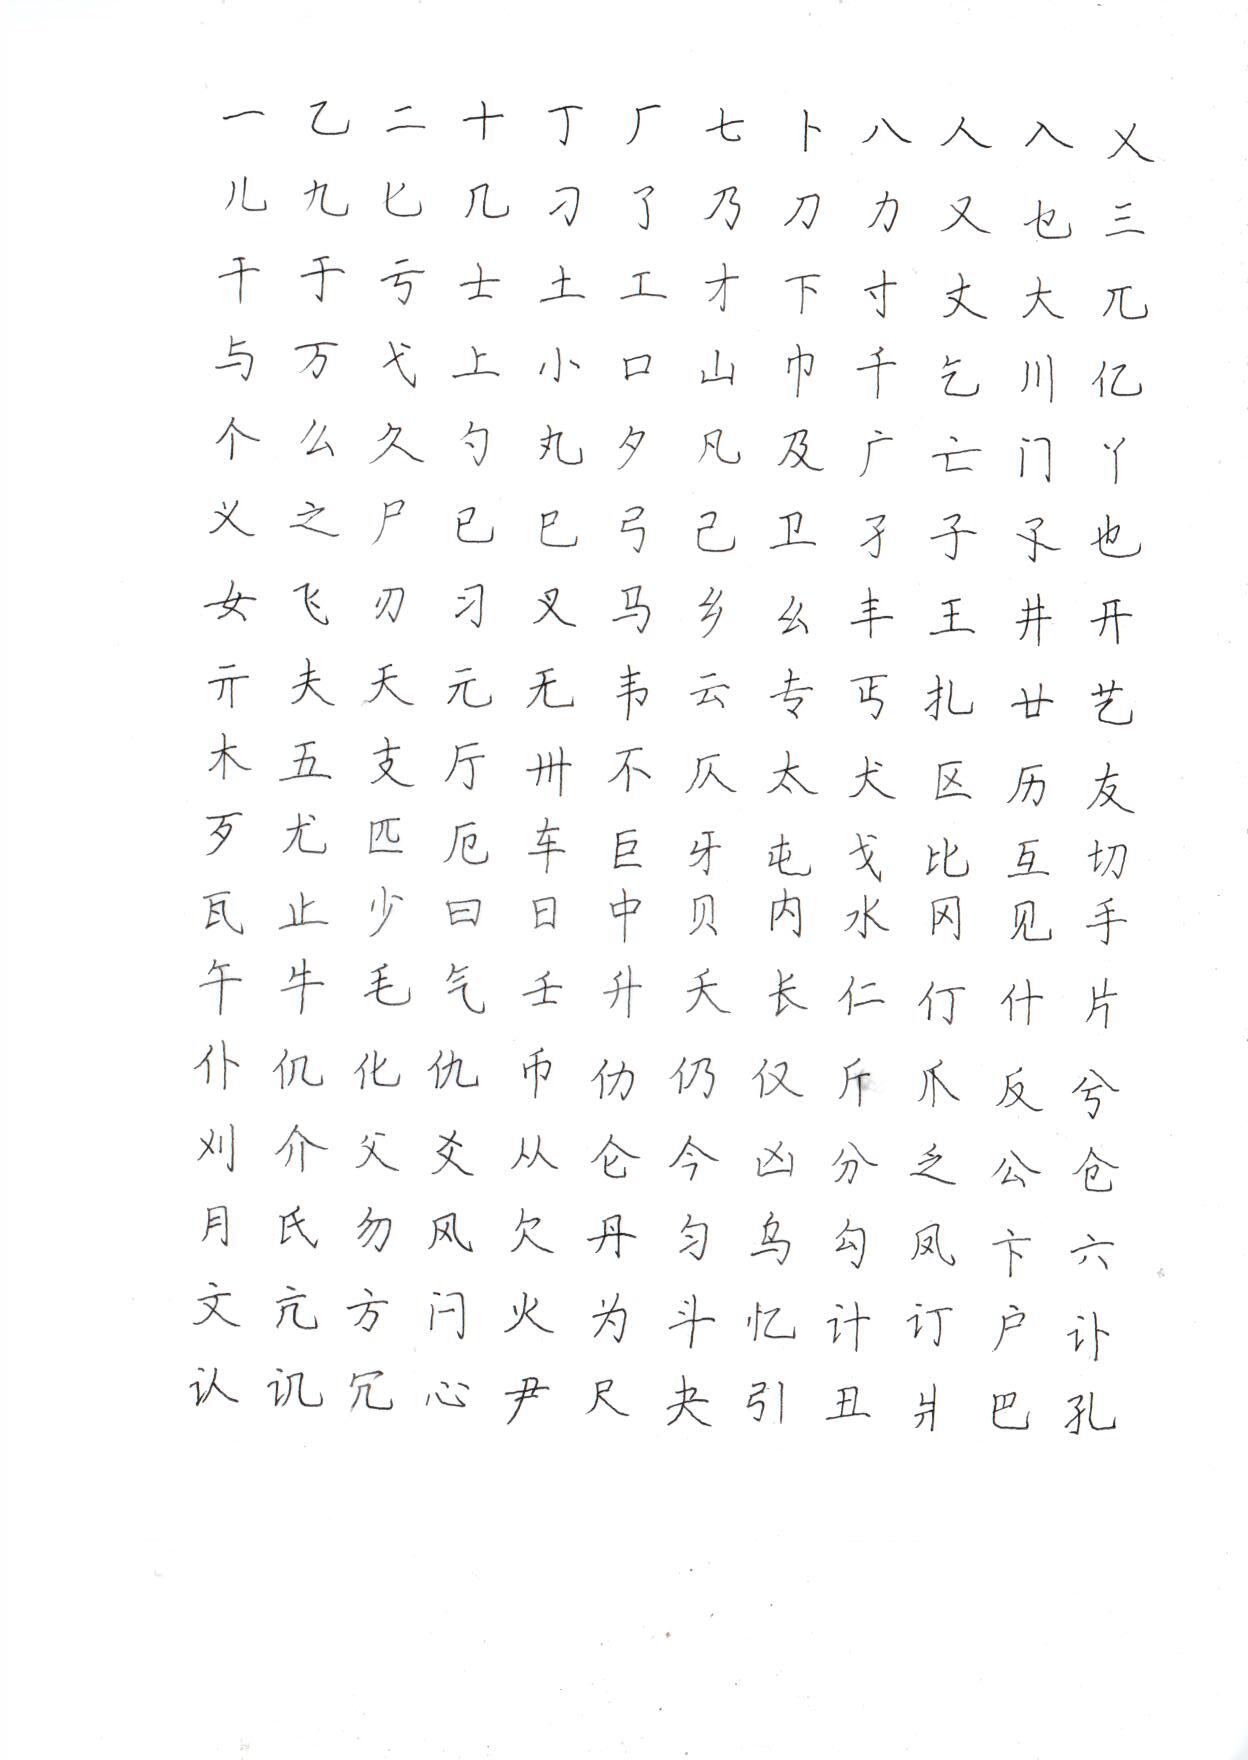 一乙二十丁厂七卜八人入乂
儿九匕几刁了乃刀力又乜三
干于亏士土工才下寸丈大兀
与万弋上小口山巾千乞川亿
个么久勺丸夕凡及广亡门丫
义之尸已巳弓己卫孑子孓也
女飞刃习叉马乡幺丰王井开
亓夫天元无韦云专丐扎廿艺
木五支厅卅不仄太犬区历友
歹尤匹厄车巨牙屯戈比互切
瓦止少曰日中贝内水冈见手
午牛毛气壬升夭长仁仃什片
仆仉化仇币仂仍仅斤爪反兮
刈介父爻从仑今凶分乏公仓
月氏勿风欠丹匀乌勾凤卞六
文亢方闩火为斗忆计订户讣
认讥冗心尹尺夬引丑爿巴孔